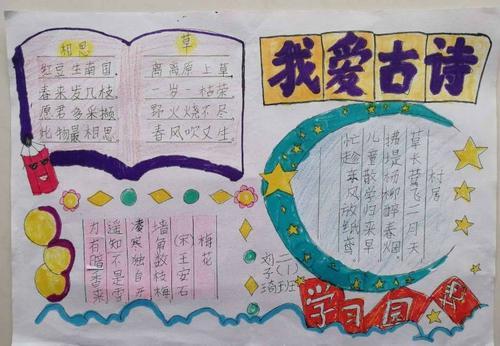 我爱古诗
相思
红豆生南国,
春来发几枝.
愿君多采撷
此物最相思.
草
离离原上草
一岁一枯荣
野火烧不尽
春风吹又生.
村居
草长莺飞二月天
拂堤杨柳醉春烟.
儿童散学归来早
忙趁东风放纸鸢.
梅花
(宋)王安石
墙角数枝梅
凌寒独自开
遥知不是雪
为有暗香来
二(1)班
刘子琦
学习园地